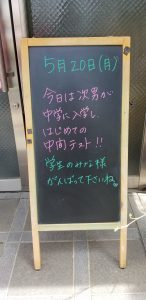 5月20日(月)
今日は次男が
中学に入学し、
はじめての
中間テスト!!
学生のみな様
がんばって下さいね